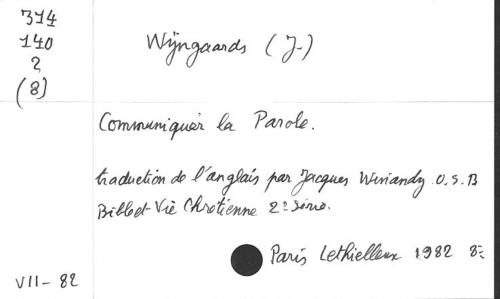 314
140
2
(8)
Wijngaards (J.)
Communiquer la Parole.
traduction de l'anglais par Jacques Winandy. O.S.B
Bible et Vie Chrétienne 2e série.
Paris Lethielleux 1982 8°
VII - 82